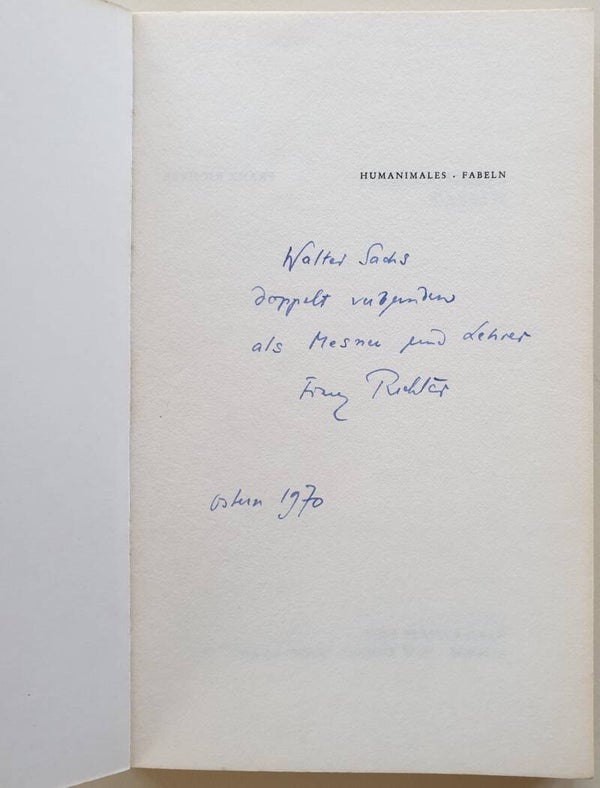 HUMANIMALES · FABELN
Walter Sachs
doppelt verbunden
als Mesner und Lehrer
Franz Richter
Ostern 1970
FRANZ RICHTER